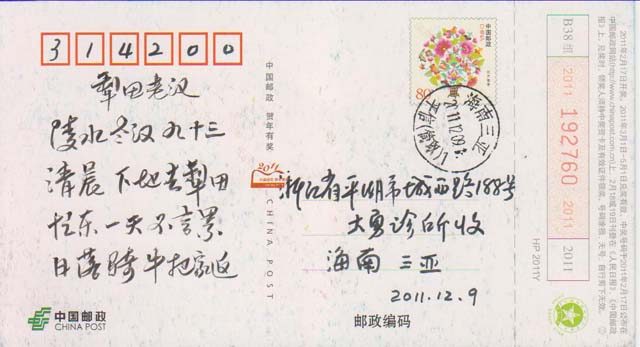 314200
犁田老汉
陵水老汉九十三
清晨下地去犁田
忙东一天不言累
日落骑牛把家返
中国邮政
CHINA POST
中国邮政 贺年有奖
2011
CHINA POST
中国邮政
80分
海南三亚
2011.12.09
浙江省平湖市城西路188号
大勇诊所收
海南 三亚
2011.12.9
邮政编码
HP 2011Y
B38 组
2011
192760
2011
2011